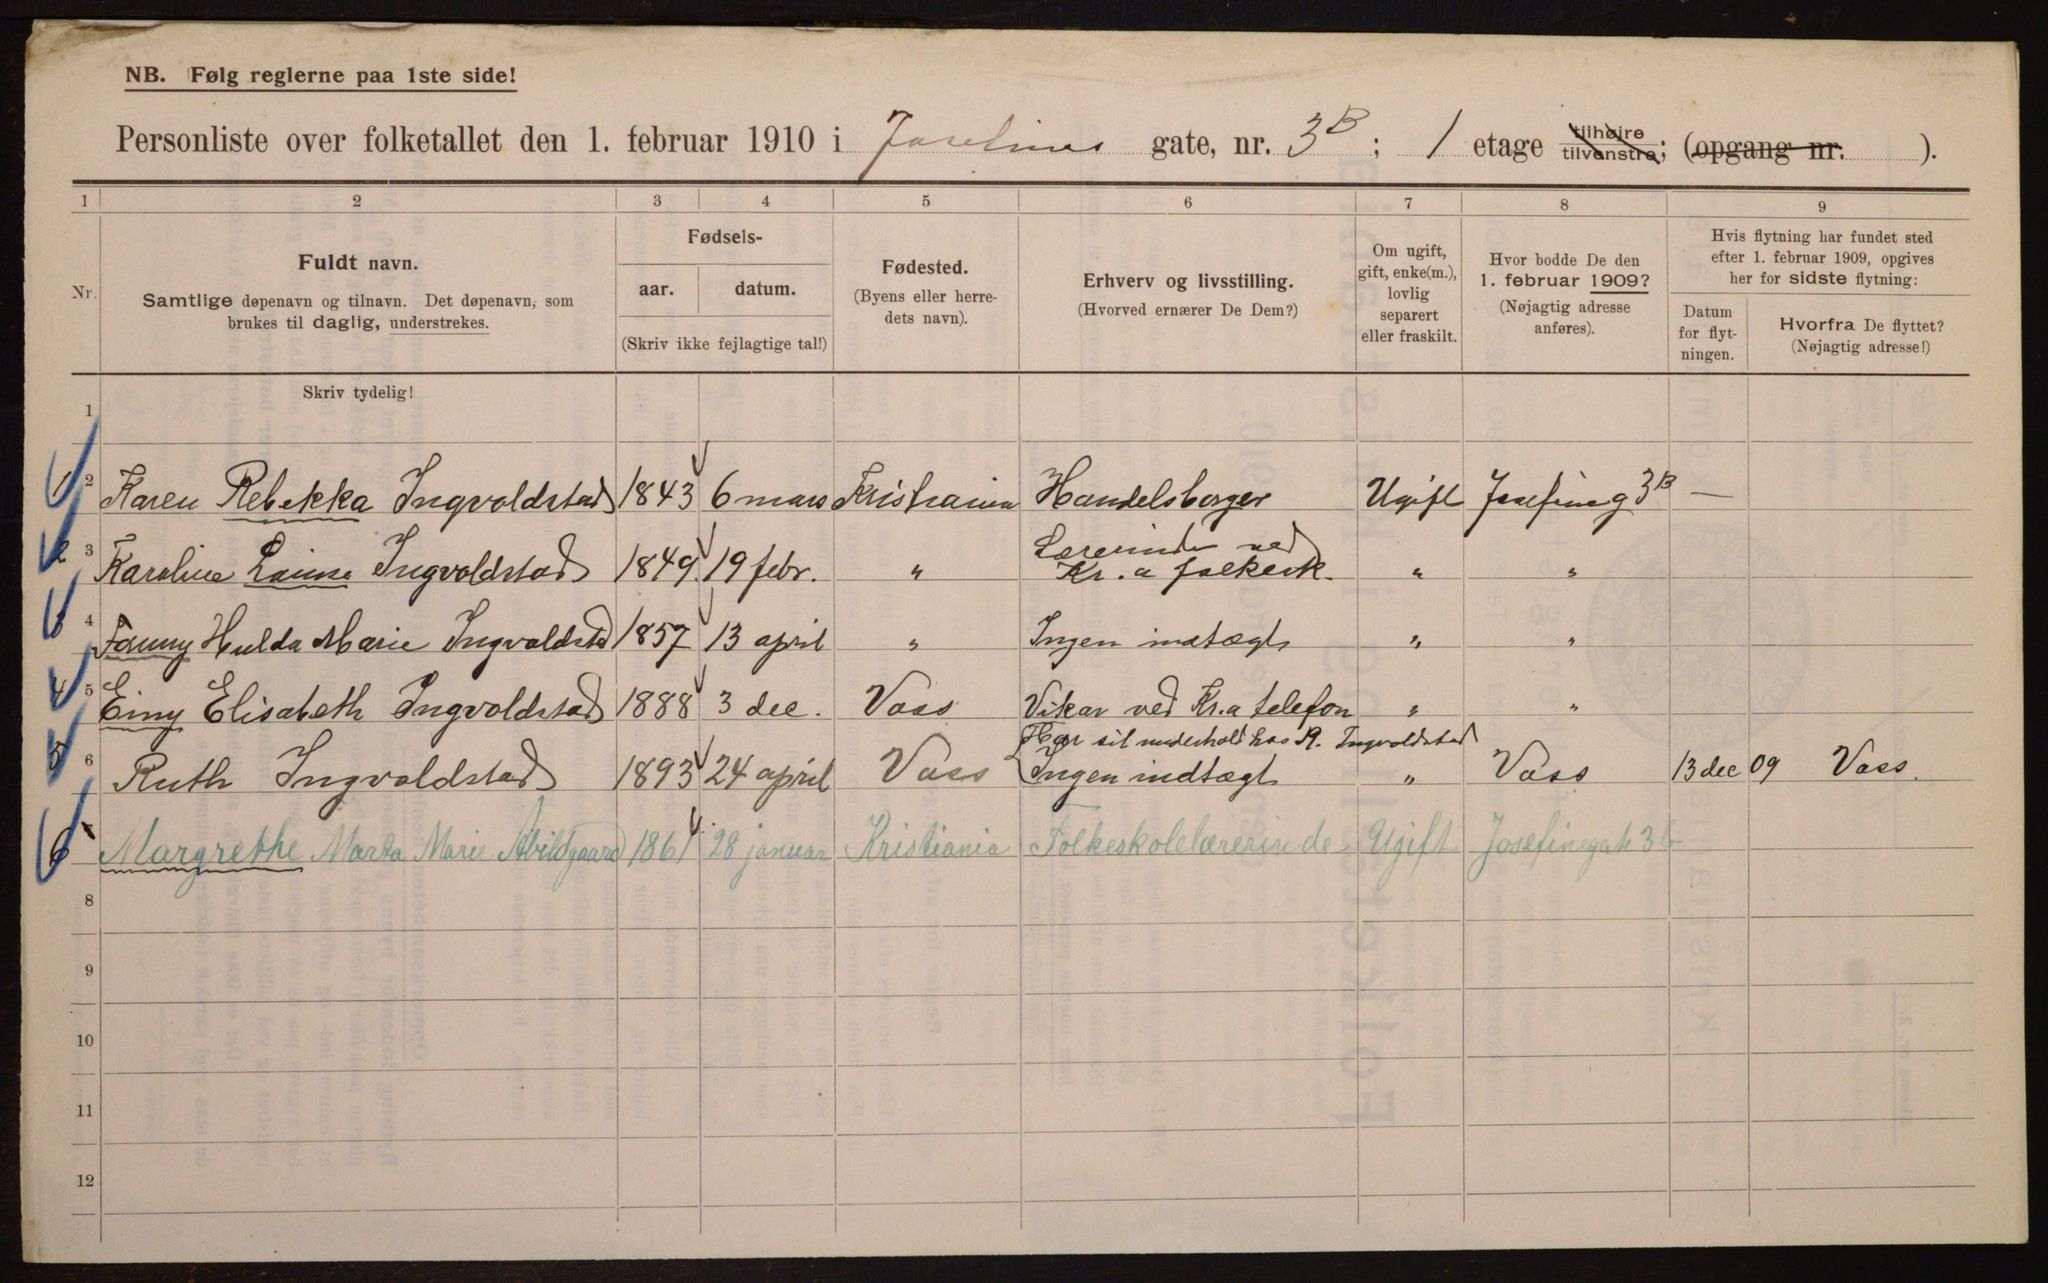 NB. Følg reglerne paa 1ste side!
Personliste over folketallet den 1. februar 1910 i Josefines gate, nr. 3B; 1 etage tilhøire tilvenstre; (opgang nr. ).
1 2 3 4 5 6 7 8 9
Nr.
Fuldt navn.
Samtlige døpenavn og tilnavn. Det døpenavn, som
brukes til daglig, understrekes.
Fødsels-
aar. datum.
(Skriv ikke fejlagtige tal!)
Fødested.
(Byens eller herre-
dets navn).
Erhverv og livsstilling.
(Hvorved ernærer De Dem?)
Om ugift,
gift, enke(m.),
lovlig
separert
eller fraskilt.
Hvor bodde De den
1. februar 1909?
(Nøjagtig adresse
anføres).
Hvis flytning har fundet sted
efter 1. februar 1909, opgives
her for sidste flytning:
Datum
for flyt-
ningen.
Hvorfra De flyttet?
(Nøjagtig adresse!)
Skriv tydelig!
1
1 2 Karen Rebekka Ingvoldstad 1843 6 mars Kristiania Handelsborger Ugift Josefineg 3B —
2 3 Karoline Louise Ingvoldstad 1849 19 febr. " Lærerinde ved
Kr.a folkesk. " "
3 4 Fanny Hulda Marie Ingvoldstad 1857 13 april " Ingen indtægt " "
4 5 Einy Elisabeth Ingvoldstad 1888 3 dec. Voss Vikar ved Kr.a telefon " "
Har sit underhold hos R. Ingvoldstad
5 6 Ruth Ingvoldstad 1893 24 april Voss Ingen indtægt " Voss 13 dec 09 Voss.
6 Margrethe Marta Marie Abildgaard 1861 28 januar Kristiania Folkeskolelærerinde Ugift Josefinegate 3b
8
9
10
11
12